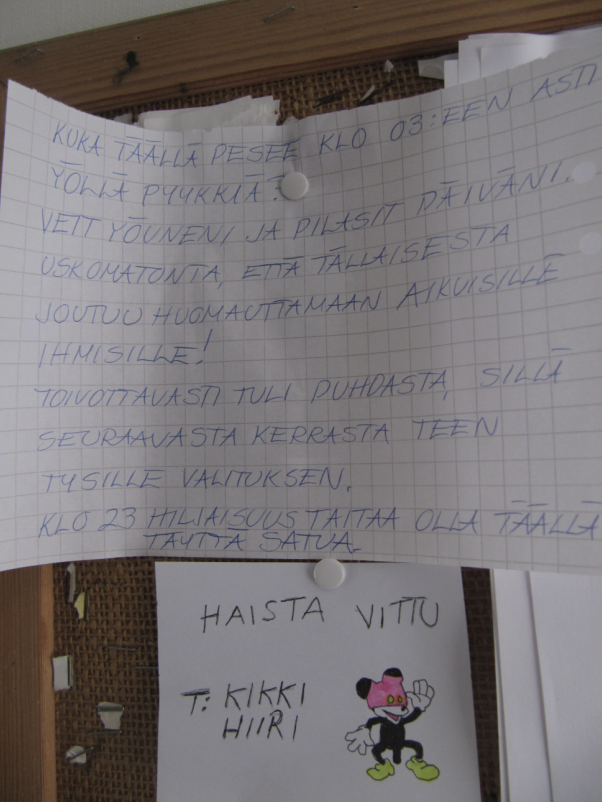 KUKA TÄÄLLÄ PESEE KLO 03:EEN ASTI
YÖLLÄ PYYKKIÄ?
VEIT YÖUNENI JA PILASIT PÄIVÄNI.
USKOMATONTA, ETTÄ TÄLLAISESTA
JOUTUU HUOMAUTTAMAAN AIKUISILLE
IHMISILLE!
TOIVOTTAVASTI TULI PUHDASTA, SILLÄ
SEURAAVASTA KERRASTA TEEN
TYSILLE VALITUKSEN.
KLO 23 HILJAISUUS TAITAA OLLA TÄÄLLÄ
TÄYTTÄ SATUA.
HAISTA VITTU
T: KIKKI
HIIRI